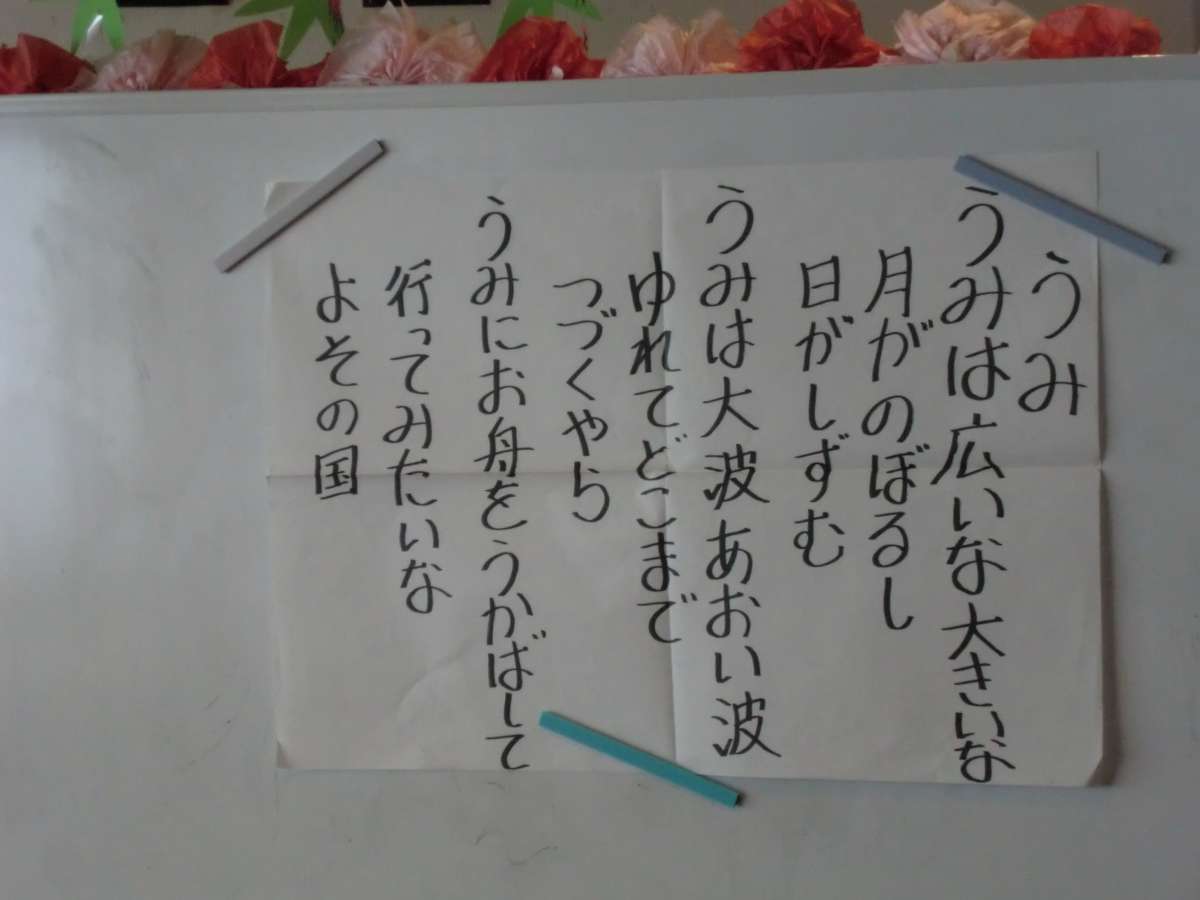 うみ
うみは広いな大きいな
月がのぼるし
日がしずむ
うみは大波あおい波
ゆれてどこまで
つづくやら
うみにお舟をうかばして
行ってみたいな
よその国